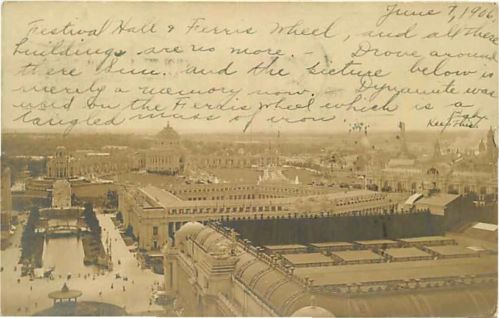 June 7, 1906
Festival Hall & Ferris Wheel, and all these
buildings are no more. - Drove around
there Sun. and the picture below is
merely a memory now. - Dynamite was
used on the Ferris Wheel which is a
tangled mass of iron.
Keep this